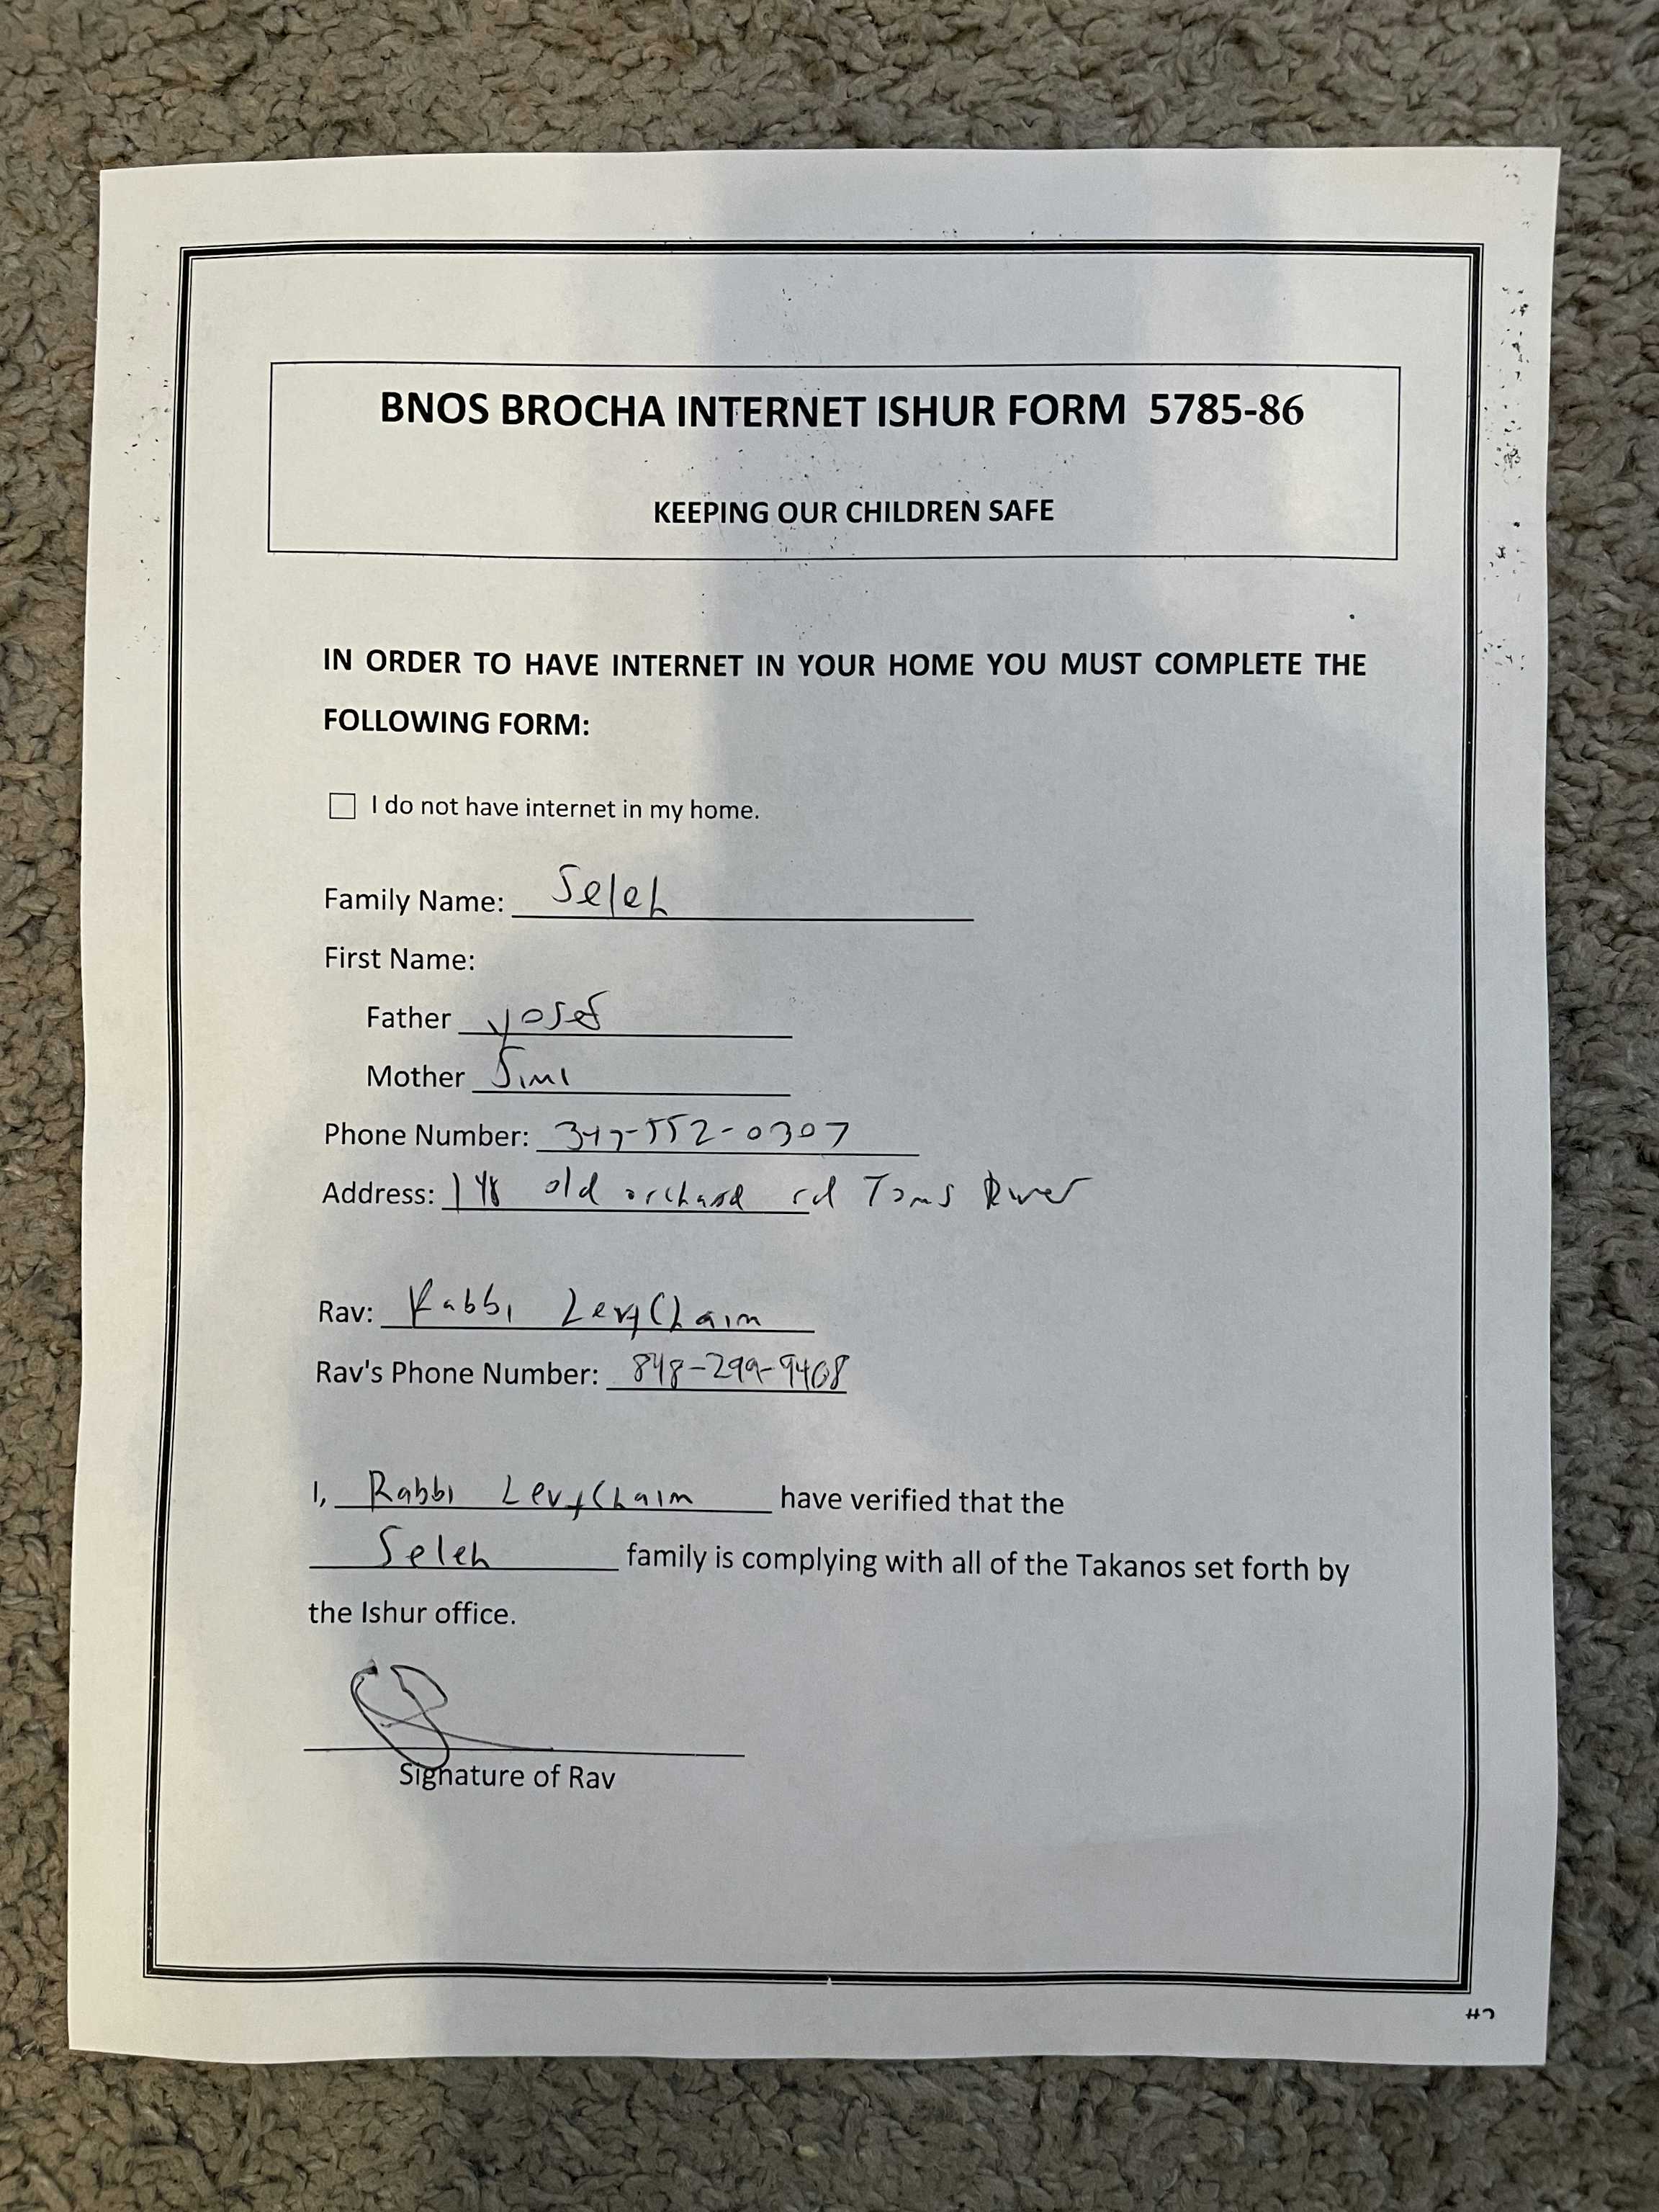 BNOS BROCHA INTERNET ISHUR FORM 5785-86
KEEPING OUR CHILDREN SAFE
IN ORDER TO HAVE INTERNET IN YOUR HOME YOU MUST COMPLETE THE
FOLLOWING FORM:
I do not have internet in my home.
Family Name: Seleh
First Name:
Father Yosef
Mother Simi
Phone Number: 347-552-0307
Address: 148 old orchard rd Toms River
Rav: Rabbi LevyChaim
Rav's Phone Number: 848-299-9408
I, Rabbi LevyChaim have verified that the
Seleh family is complying with all of the Takanos set forth by
the Ishur office.
Signature of Rav